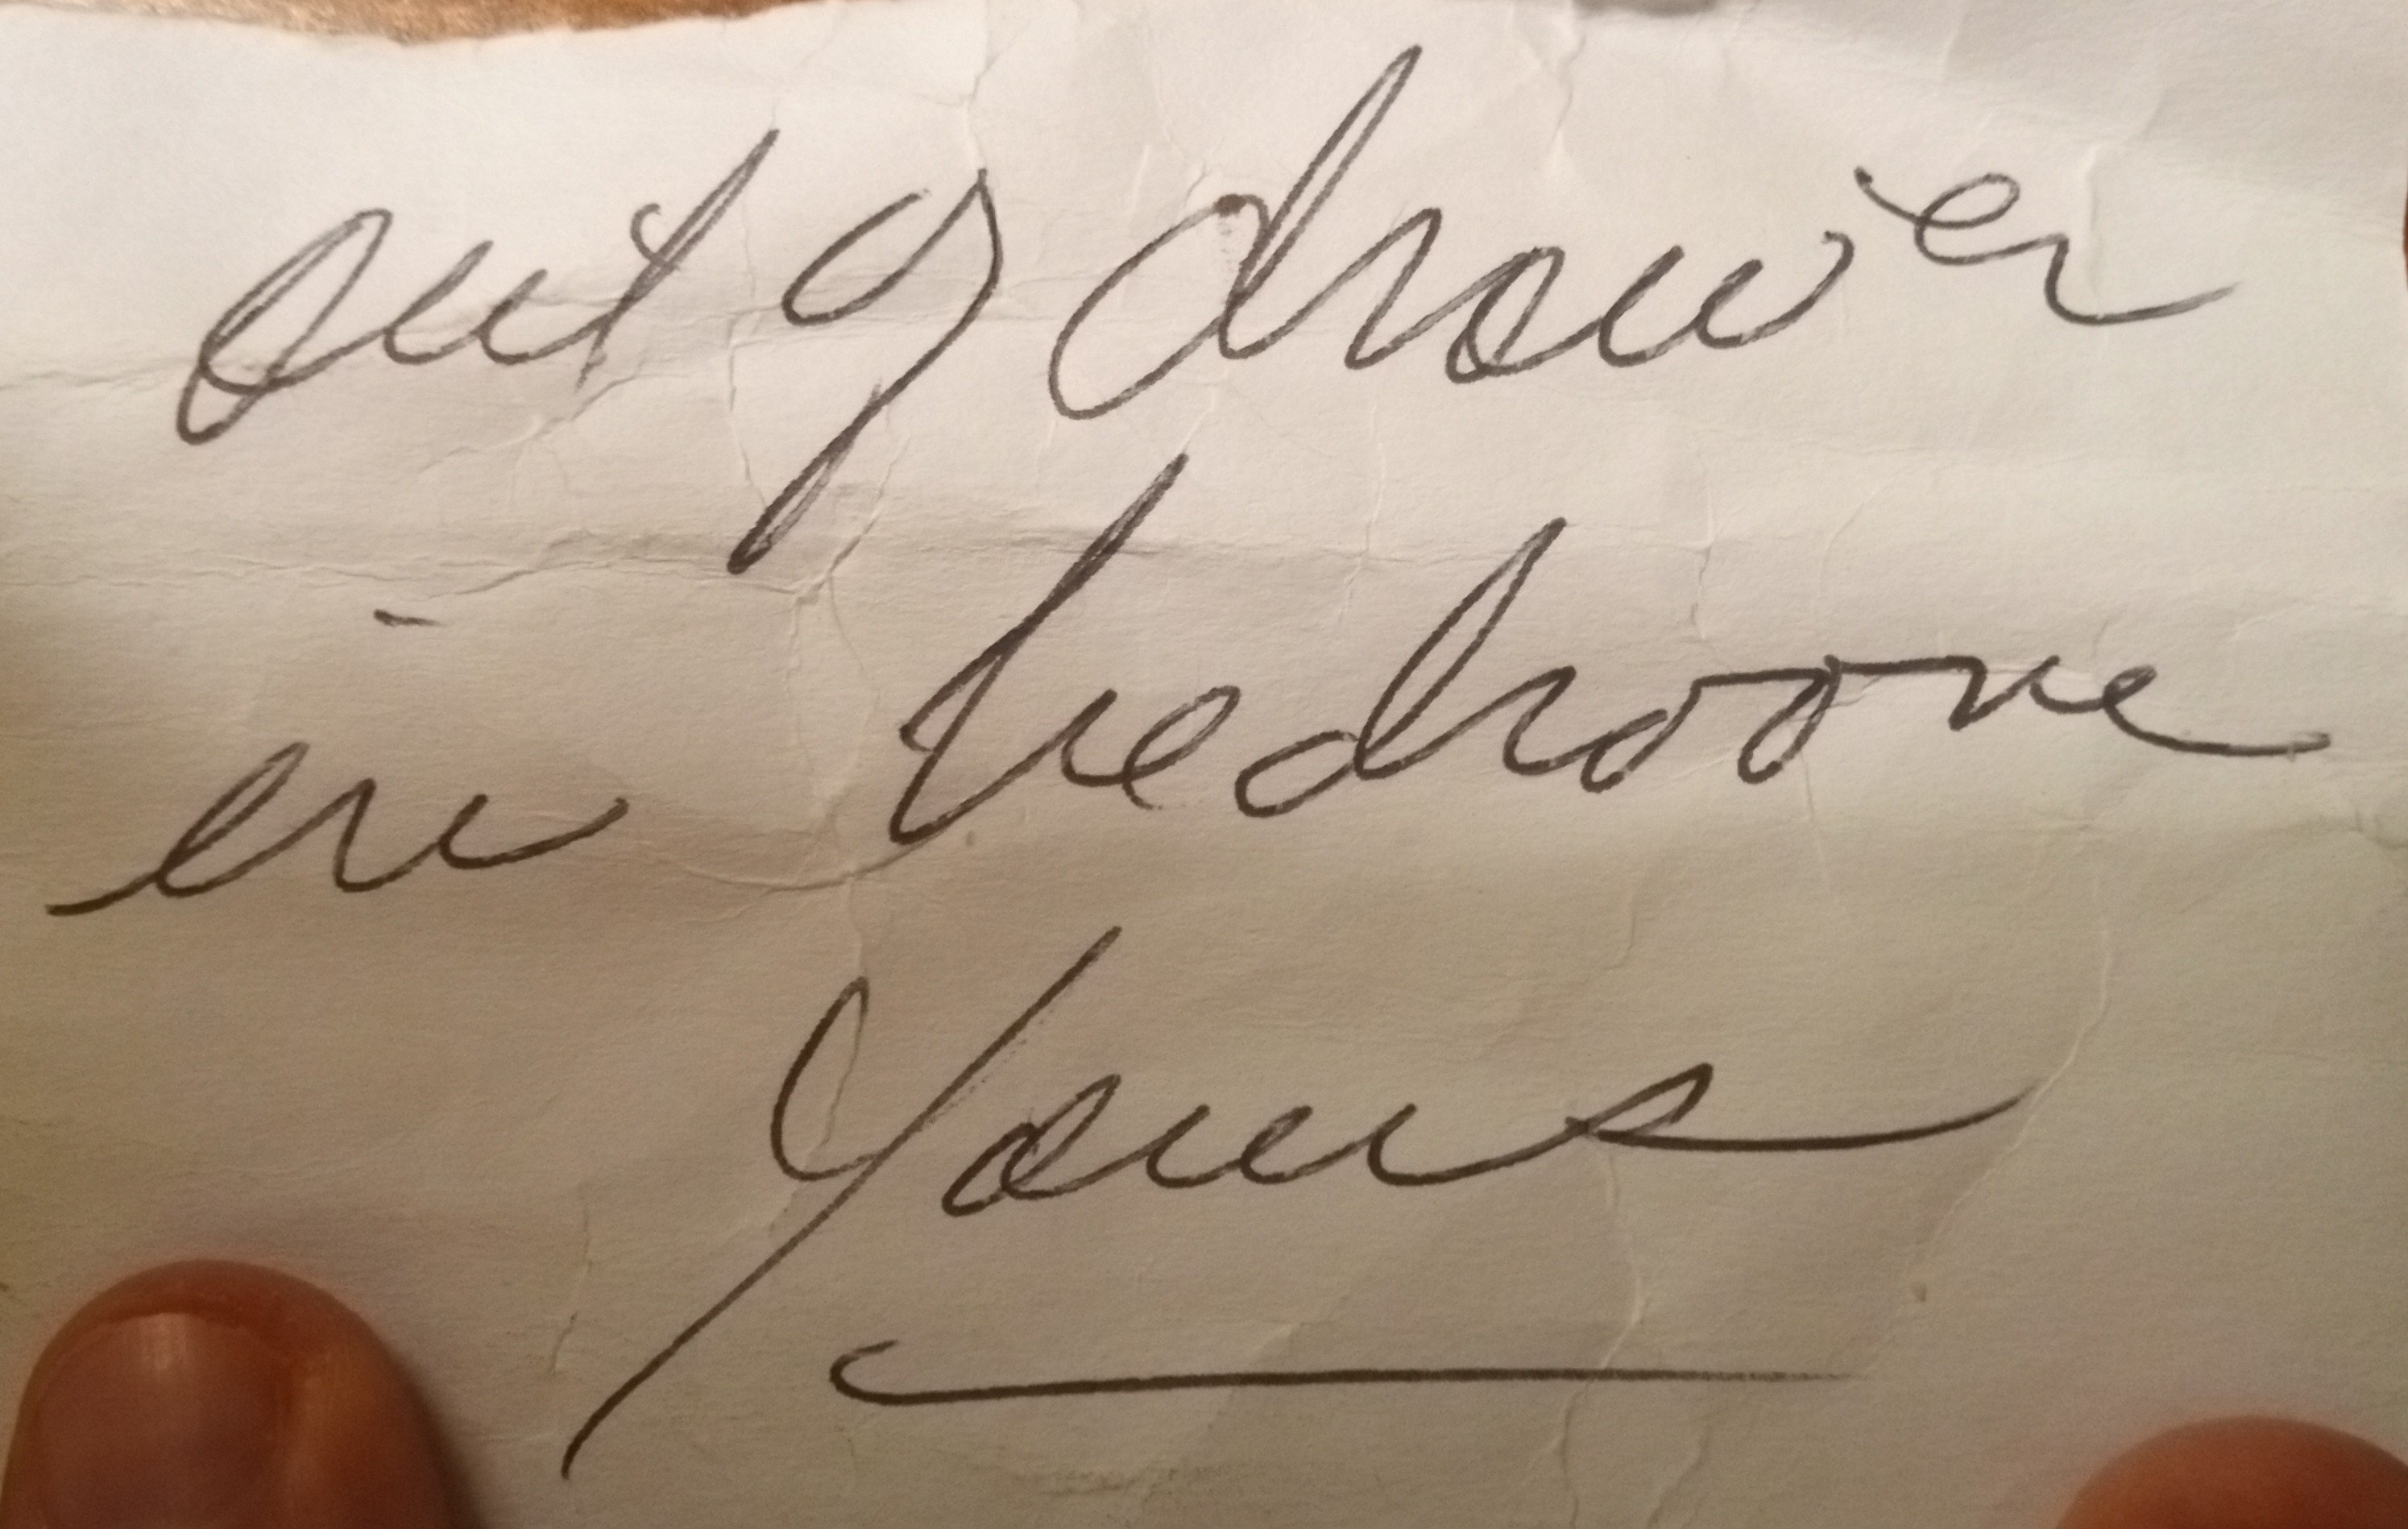 out of drawer
in bedroom
Yours